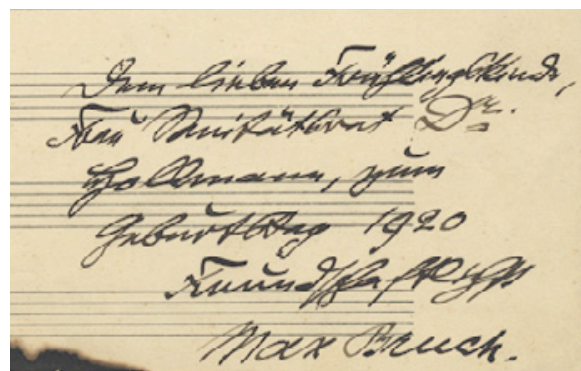 Dem lieben Frühlingskinde,
Frau Sanitätsrat Dr.
Hollmann, zum
Geburtstag 1920
Freundschaftlichst
Max Bruch.